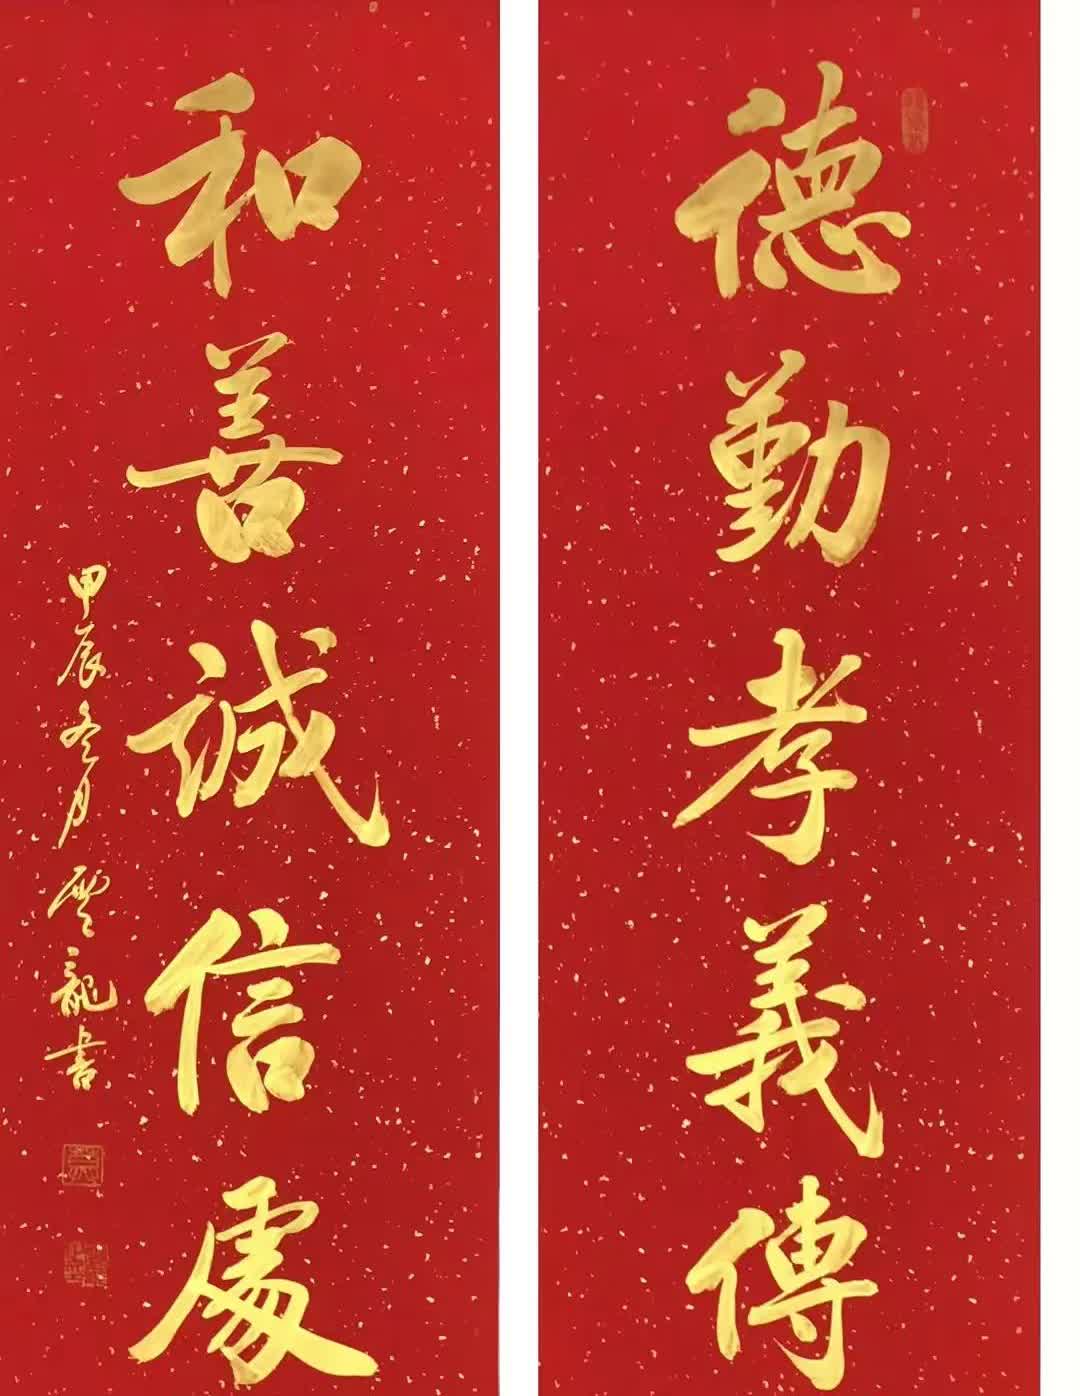 德勤孝義傳
和善誠信處
甲辰冬月雲龍書